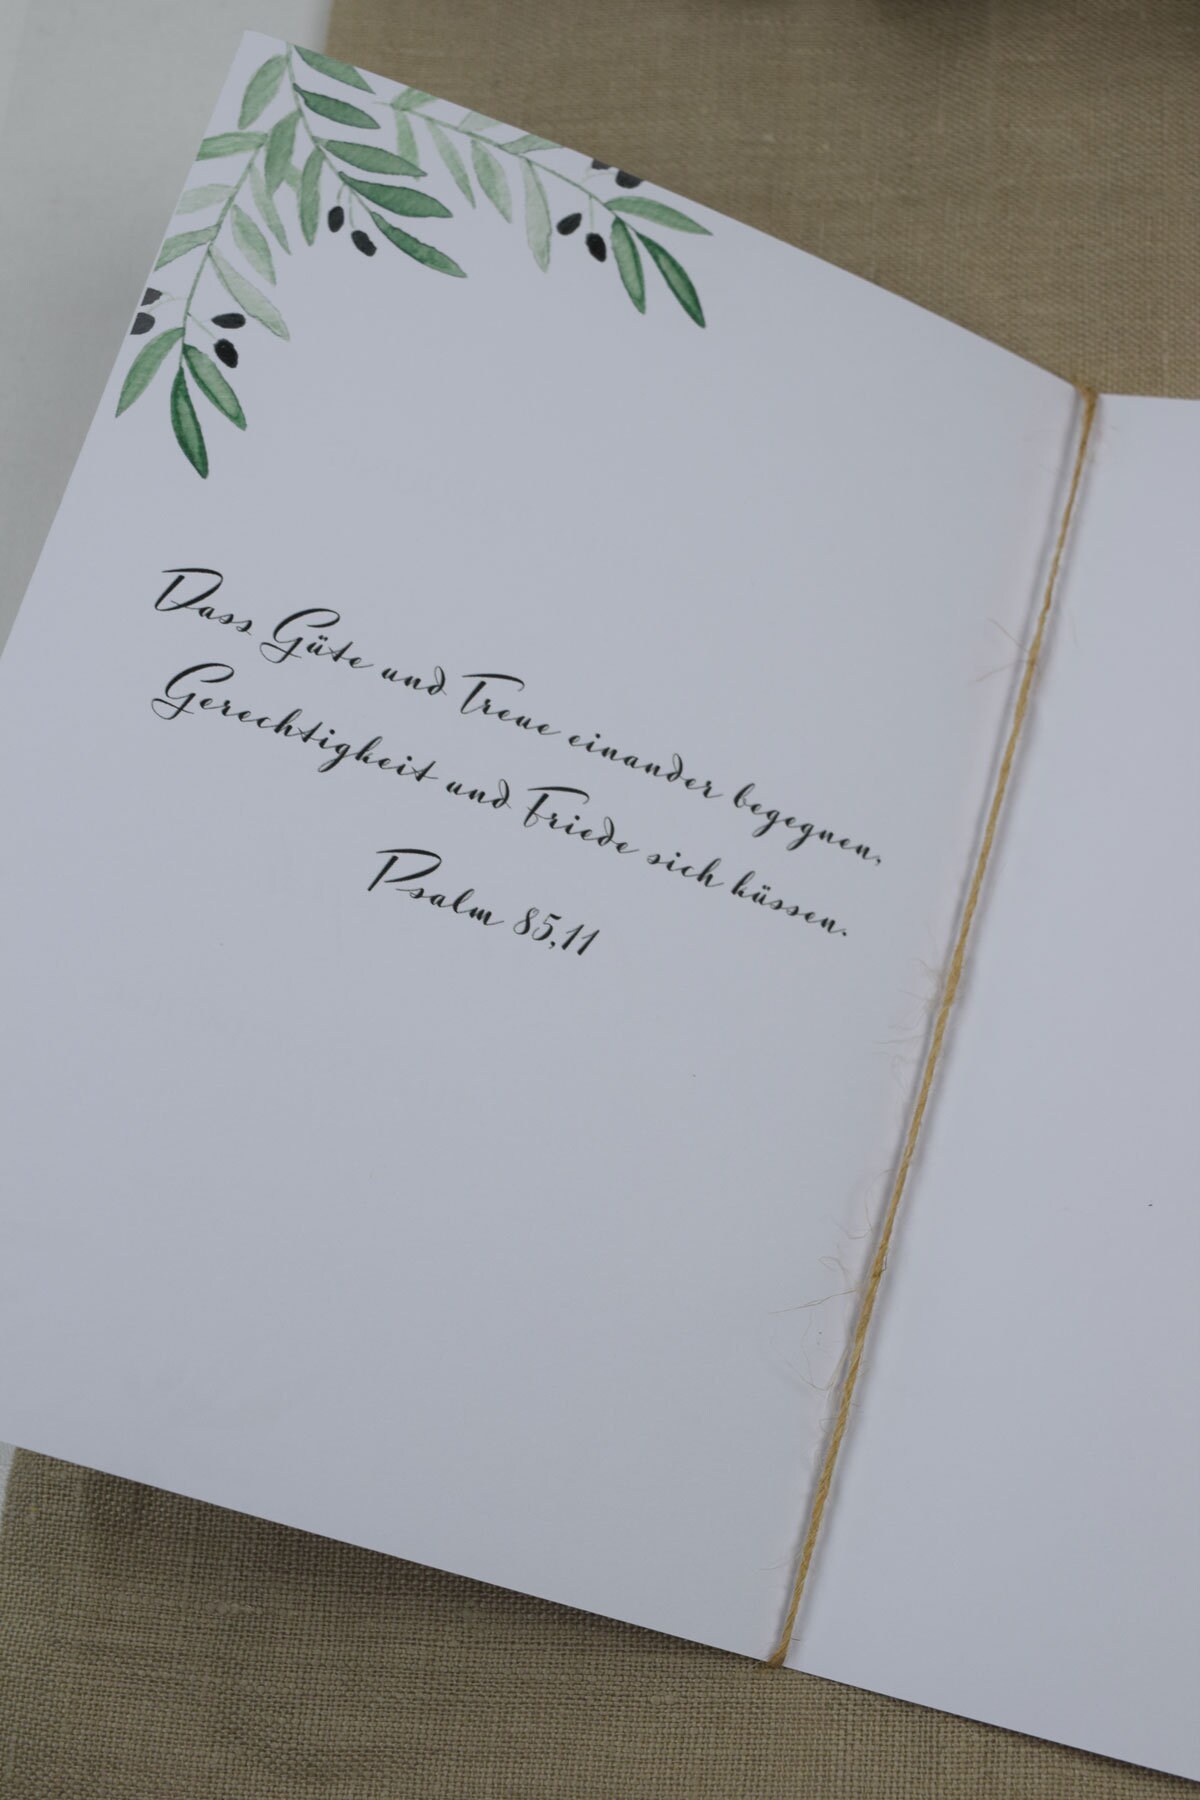 Dass Güte und Treue einander begegnen,
Gerechtigkeit und Friede sich küssen.
Psalm 85,11